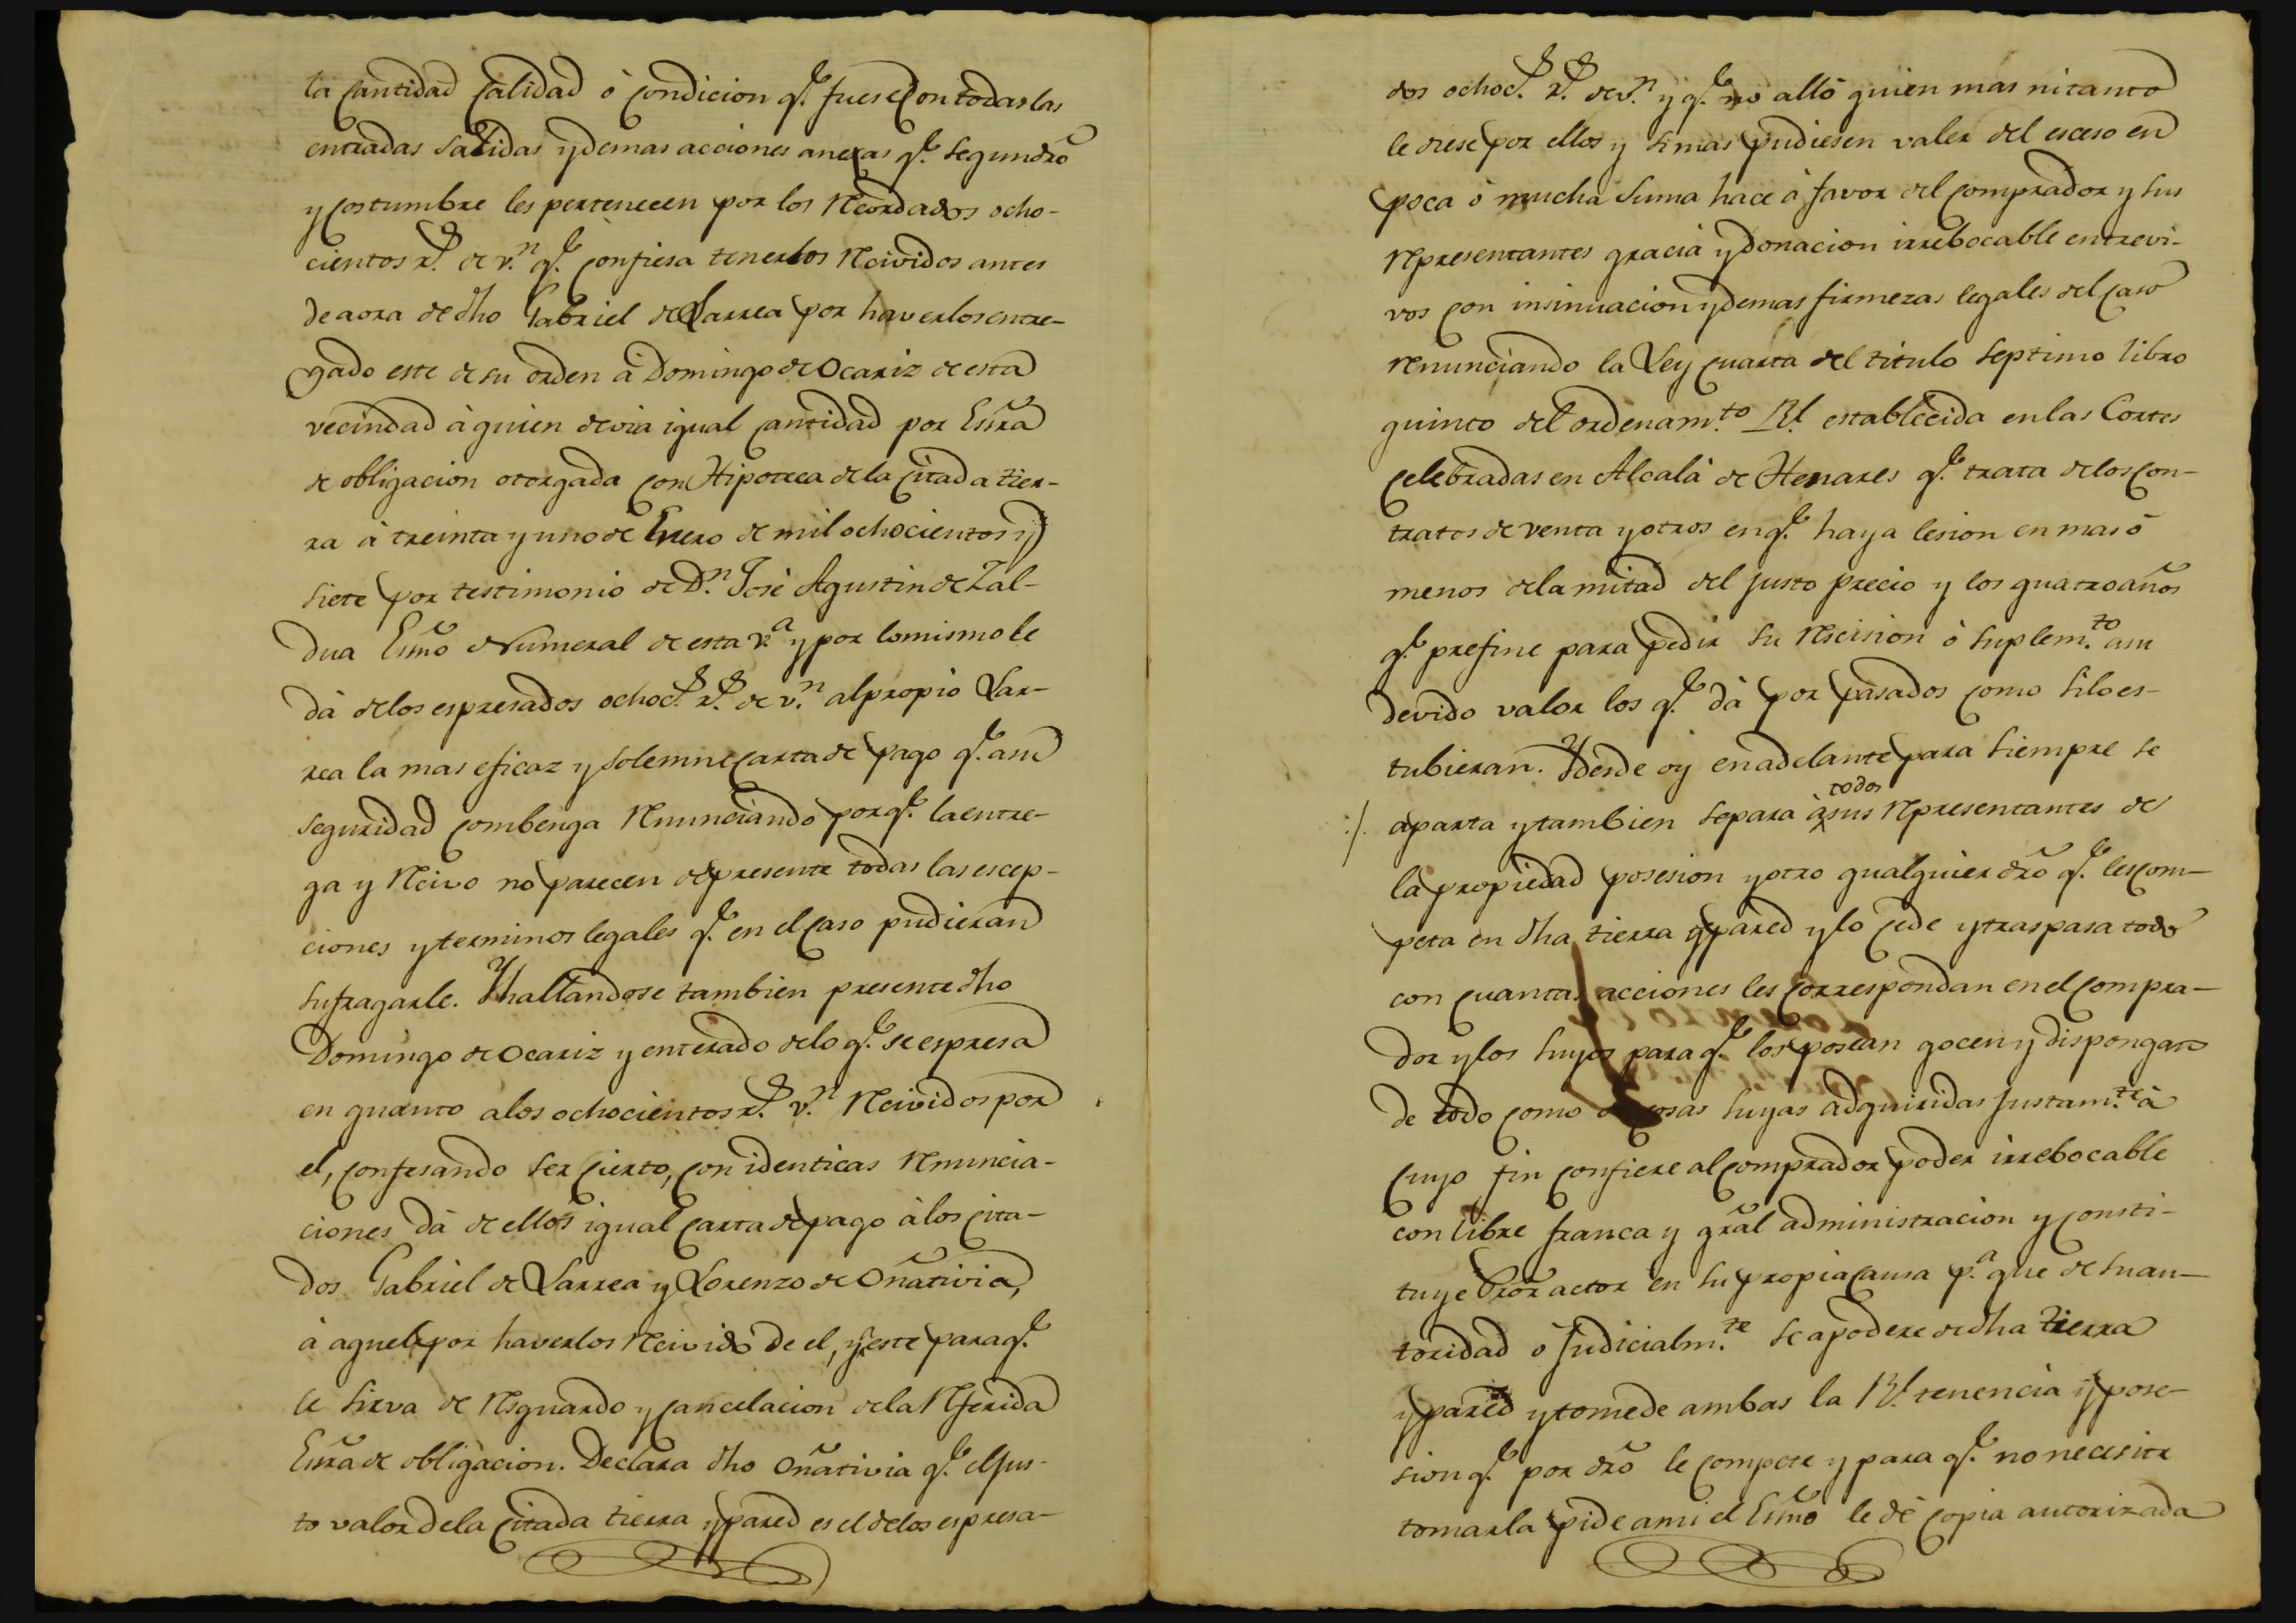 la cantidad calidad ò condicion q.e fuese con todas las
entradas salidas y demas acciones anexas q.e segun dro
y costumbre les pertenecen por los Recordados ocho-
cientos r.s de v.n q.e confiesa tenerlos Recividos antes
de aora de dho Gabriel de Larrea por haverlos entre-
gado este de su orden à Domingo de Ocariz de esta
vecindad à quien devia igual cantidad por Esra
de obligacion otorgada con Hipoteca de la citada tier-
ra à treinta y uno de Enero de mil ochocientos y
siete por testimonio de D.n José Agustin de Zal-
dua Esno Numeral de esta V.a y por lo mismo le
dà de los espresados ochoc.s r.s de v.n al propio Lar-
rea la mas eficaz y solemne carta de pago q.e a su
seguridad combenga Renunciando por q.e la entre-
ga y Recivo no parecen de presente todas las escep-
ciones y terminos legales q.e en el caso pudieran
sufragarle. Y hallandose tambien presente dho
Domingo de Ocariz y enterado de lo q.e se espresa
en quanto a los ochocientos r.s v.n Recividos por
el, confesando ser cierto, con identicas Renuncia-
ciones dà de ellos igual carta de pago à los cita-
dos Gabriel de Larrea y Lorenzo de Oñativia,
à aquel por haverlos Recivido de el, y este para q.e
le sirva de Resguardo y cancelacion de la Referida
Esra de obligacion. Declara dho Oñativia q.e el jus-
to valor de la citada tierra y pared es el de los espresa-
dos ochoc.s r.s de v.n y q.e no alló quien mas ni tanto
le diese por ellos y si mas pudiesen valer del esceso en
poca ò mucha suma hace à favor del comprador y sus
Representantes gracia y donacion irrebocable entrevi-
vos con insinuacion y demas firmezas legales del caso
Renunciando la Ley cuarta del titulo septimo libro
quinto del ordenam.to Rl. establecida en las Cortes
celebradas en Alcalà de Henares q.e trata de los con-
tratos de venta y otros en q.e haya lesion en mas ò
menos de la mitad del justo precio y los quatro años
q.e prefine para pedir su Rescision ò suplem.to a su
devido valor los q.e dà por pasados como si lo es-
tubieran. Y desde oy en adelante para siempre se
aparta y tambien separa à todos sus Representantes de
la propiedad posesion y otro qualquier dro q.e les com-
peta en dha tierra y pared y lo cede y traspasa todo
con cuantas acciones les correspondan en el compra-
dor y los suyos para q.e los posean gocen y dispongan
de todo como de cosas suyas adquiridas justam.te à
cuyo fin confiere al comprador poder irrebocable
con libre franca y gral administracion y consti-
tuye Pror actor en su propia causa p.a que de su au-
toridad ò judicialm.te se apodere de dha tierra
y pared y tome de ambas la Rl. tenencia y pose-
sion q.e por dro le compete y para q.e no necesite
tomarla pide a mi el Esno le dé copia autorizada